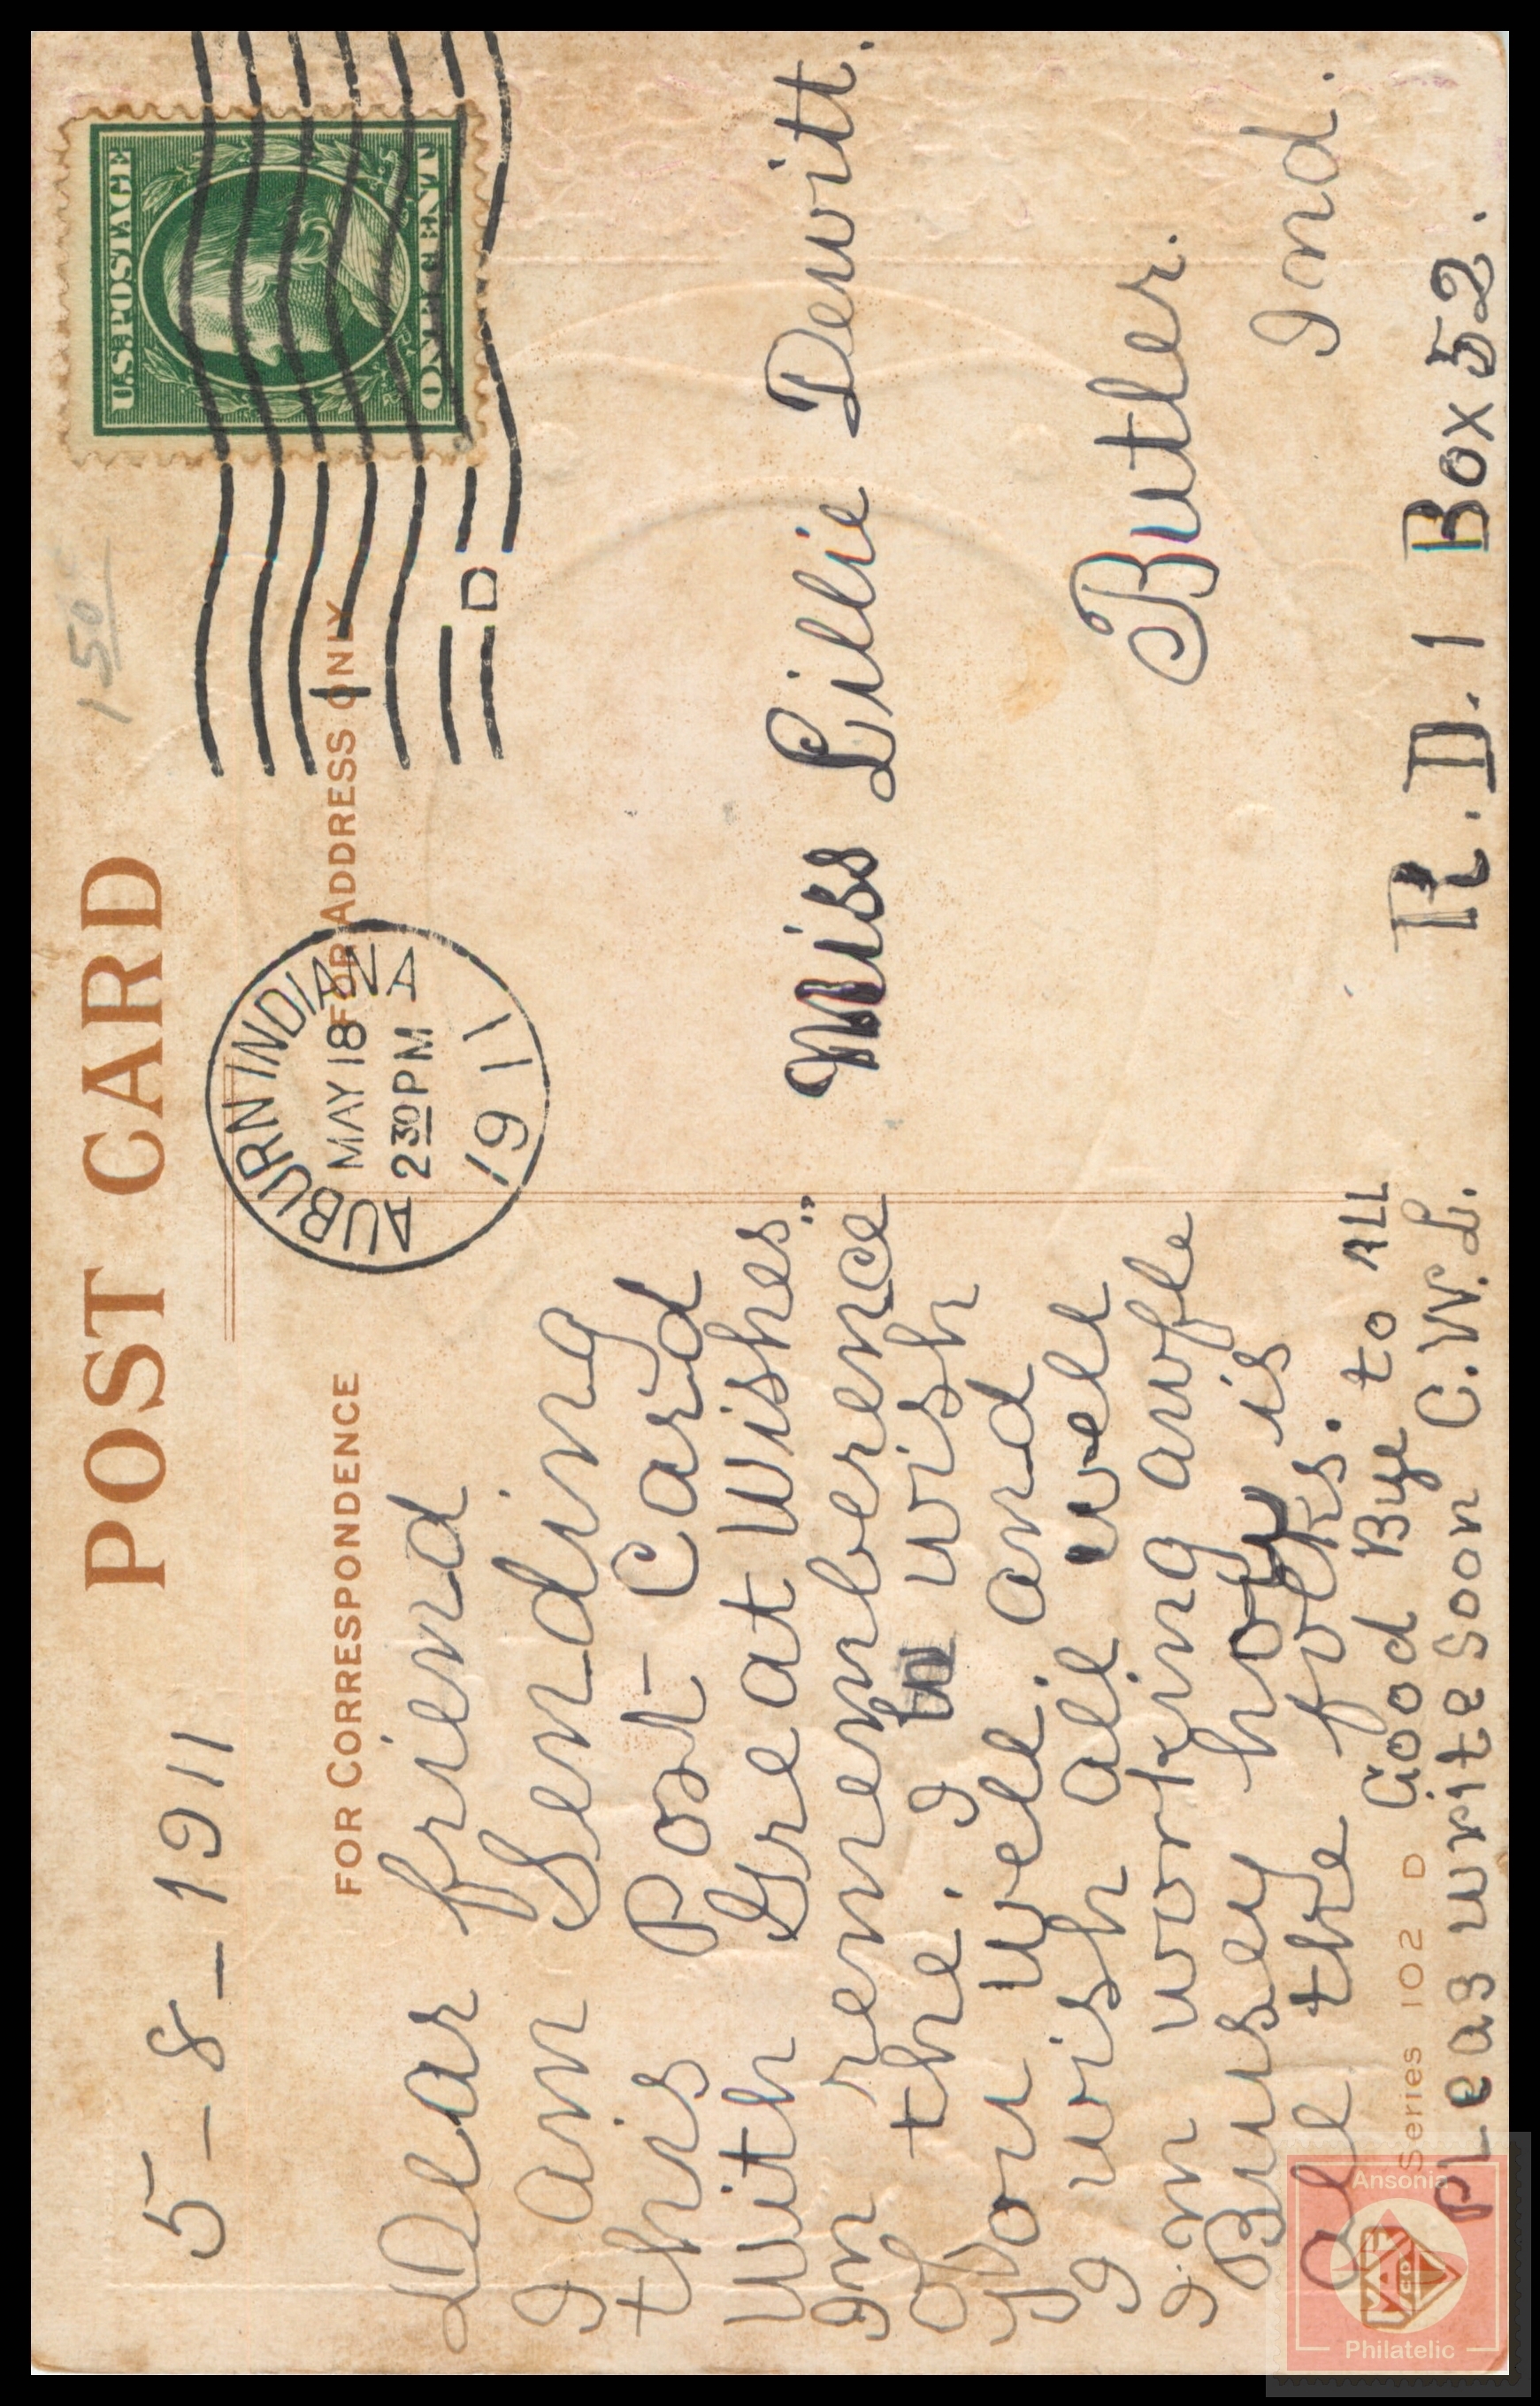 POST CARD
5-8-1911
FOR CORRESPONDENCE
FOR ADDRESS ONLY
Dear friend
I am Sending
this Post Card
With Great Wishes..
In remembererence
of the. I wish
you well. and
I wish all well
I.m working awfle
Busey how is
all the folks.
Good Bye to ALL
Pleas write Soon C.W.L.
Series 102 D
AUBURN INDIANA
MAY 18
2 30 PM
1911
D
U.S. POSTAGE
ONE CENT
150
Miss Lillie Dewitt.
Butler.
Ind.
R.D. 1 Box 52.
Ansonia
Philatelic